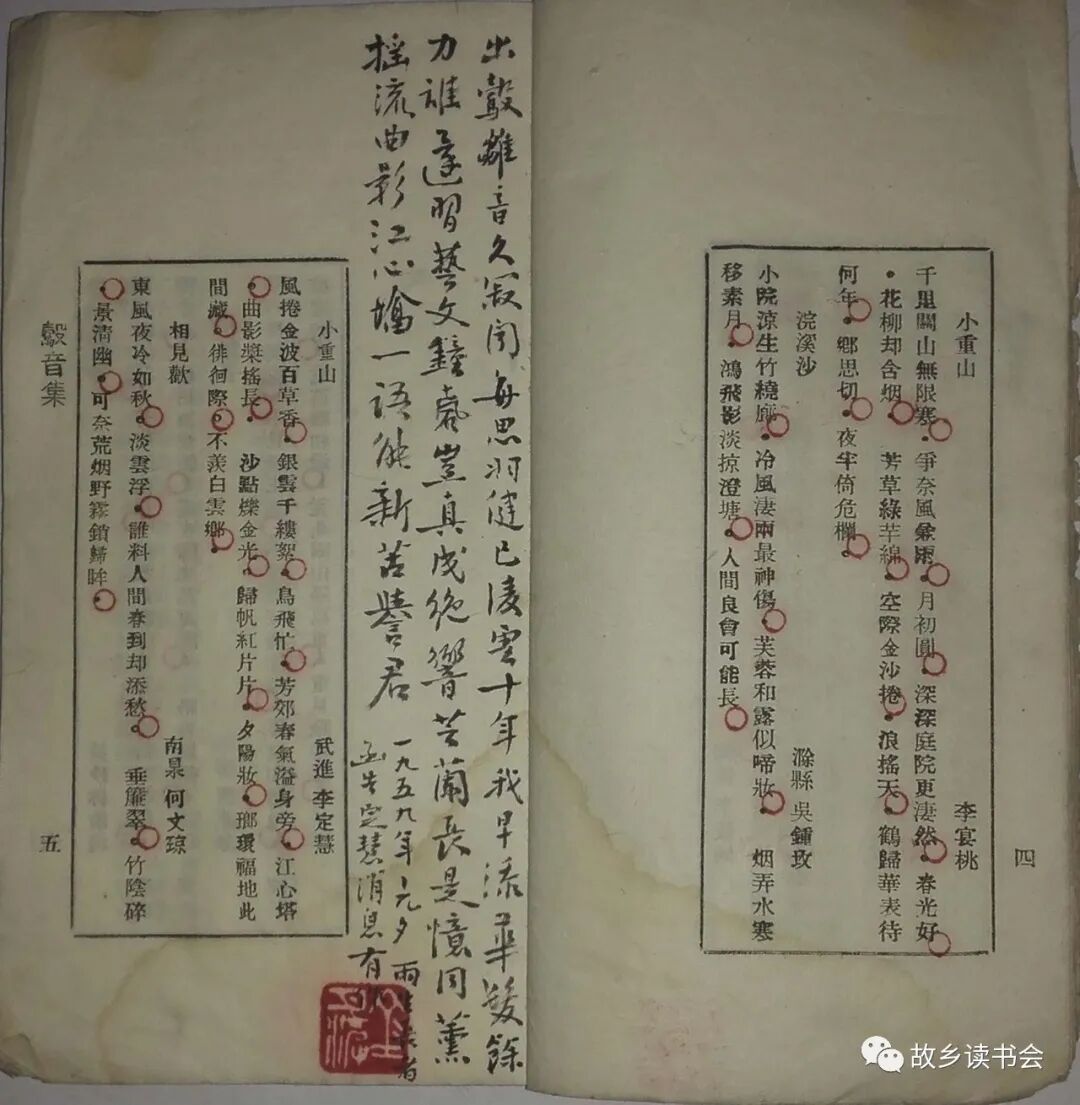 小重山　李宴桃
千里關山無限寒。爭奈風兼雨。月初圓。深深庭院更淒然。春光好
。花柳却含烟。　芳草綠芊綿。空際金沙捲。浪搖天。鶴歸華表待
何年。鄉思切。夜半倚危欄。
浣溪沙　滁縣 吳鍾玫
小院涼生竹繞廊。冷風淒雨最神傷。芙蓉和露似啼妝。　烟弄水寒
移素月。鴻飛影淡掠澄塘。人間良會可能長。
四
出鷇離音久寂聞每思羽健已凌雲十年我早添華髮餘
力誰還習藝文鐘豈真成絕響芷蘭長是憶同薰
搖流曲影江心墖一語能新苦譽君
一九五九年元夕雨者
函告定慧消息有
小重山　武進 李定慧
風捲金波百草香。銀雲千縷絮。鳥飛忙。芳郊春氣溢身旁。江心塔
。曲影槳搖長。　沙點爍金光。歸帆紅片片。夕陽妝。瑯環福地此
間藏。徘徊際。不羨白雲鄉。
相見歡　南杲 何文瓊
東風夜冷如秋。淡雲浮。誰料人間春到却添愁。　垂簾翠。竹陰碎
。景清幽。可奈荒烟野霧鎖歸眸。
鷇音集
五
故乡读书会